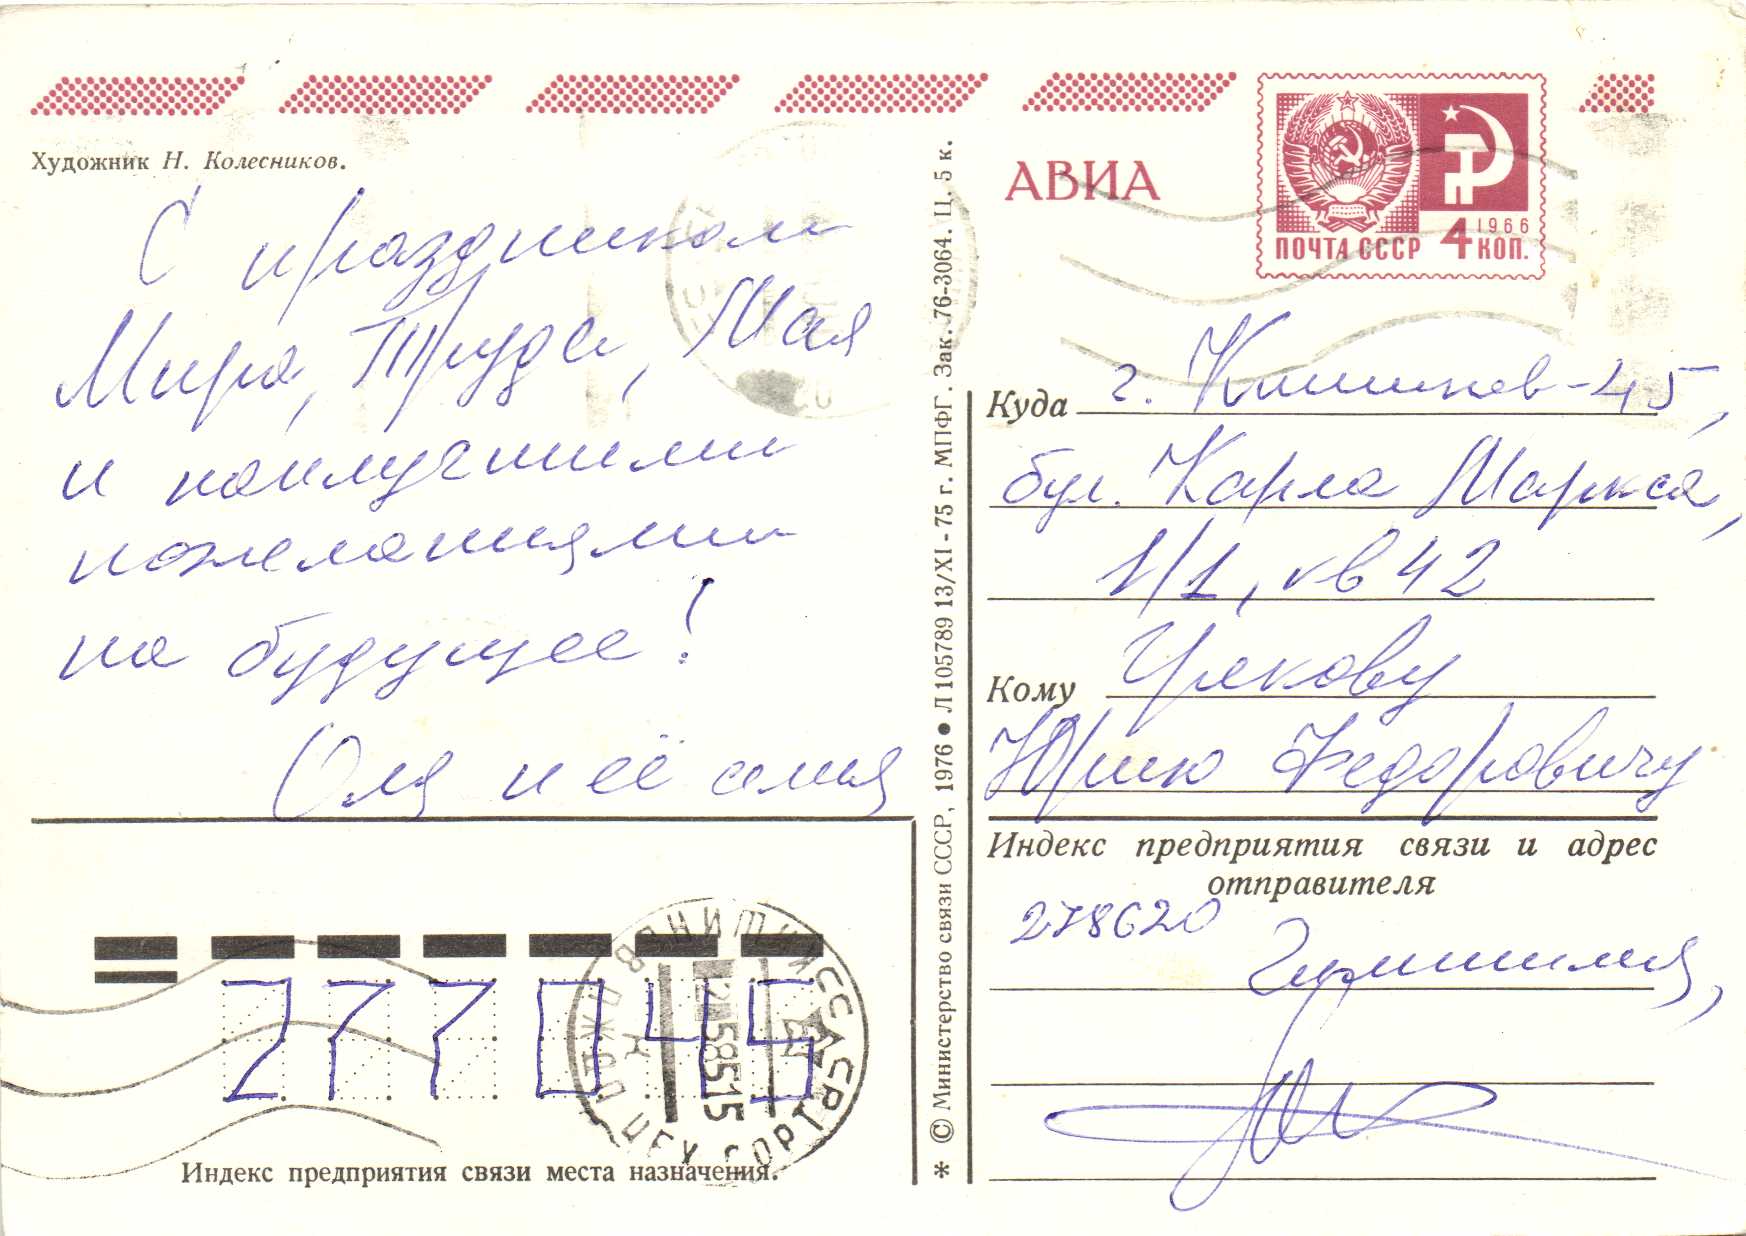 Художник Н. Колесников.
С праздником
Мира, Труда, Мая
и наилучшими
пожеланиями
на будущее!
Оля и её семья
АВИА
ПОЧТА СССР 4 КОП.
1966
Куда г. Кишинев-45,
бул. Карла Маркса,
1/1, кв 42
Кому
Юрию Федоровичу
Индекс предприятия связи и адрес
отправителя
278620
277045
Индекс предприятия связи места назначения.
* © Министерство связи СССР, 1976 ● Л 105789 13/XI - 75 г. МПФГ. Зак. 76-3064. Ц. 5 к.